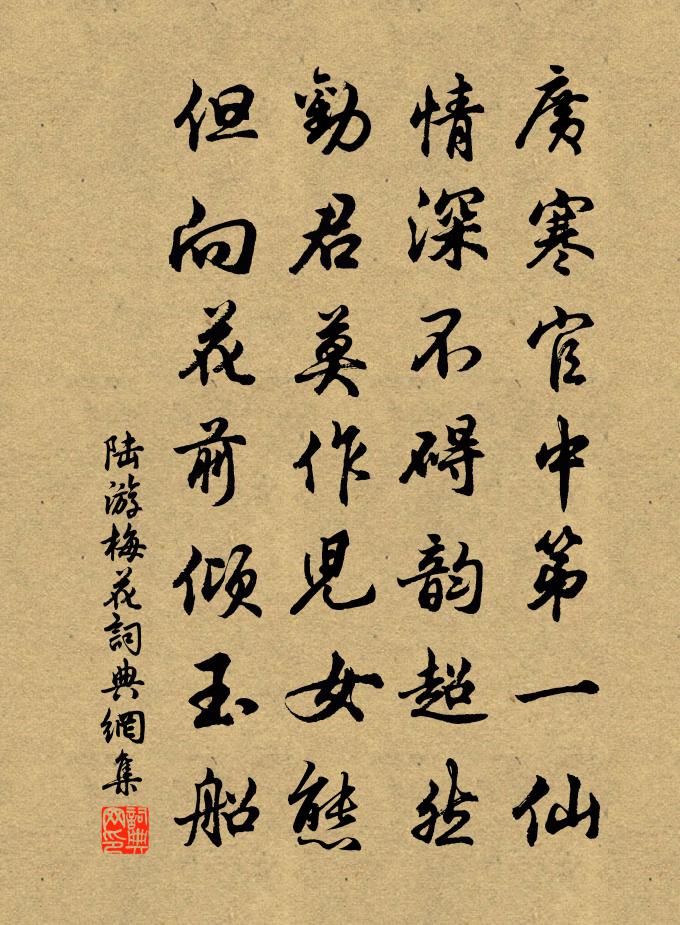 廣寒官中第一仙
情深不碍韵超然
勸君莫作兒女態
但向花前倾玉船
陆游梅花詞典網集
詞典网印